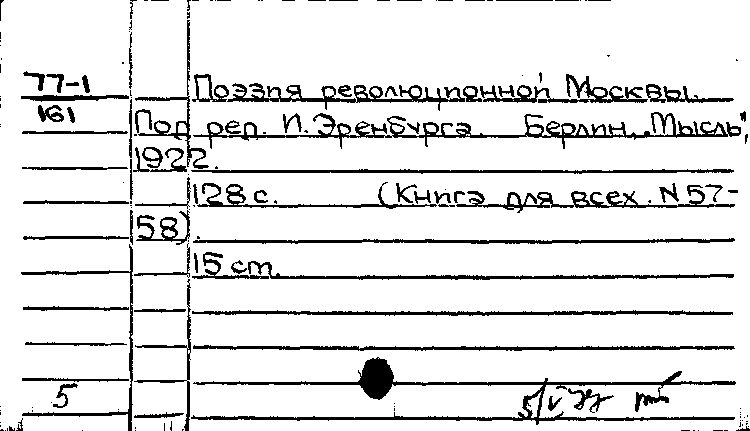 77-1
161
Поэзия революционной Москвы.
Под ред. И. Эренбурга. Берлин, „Мысль",
1922.
128 с. (Книга для всех. N 57-
58).
15 cm.
5
5/V 77